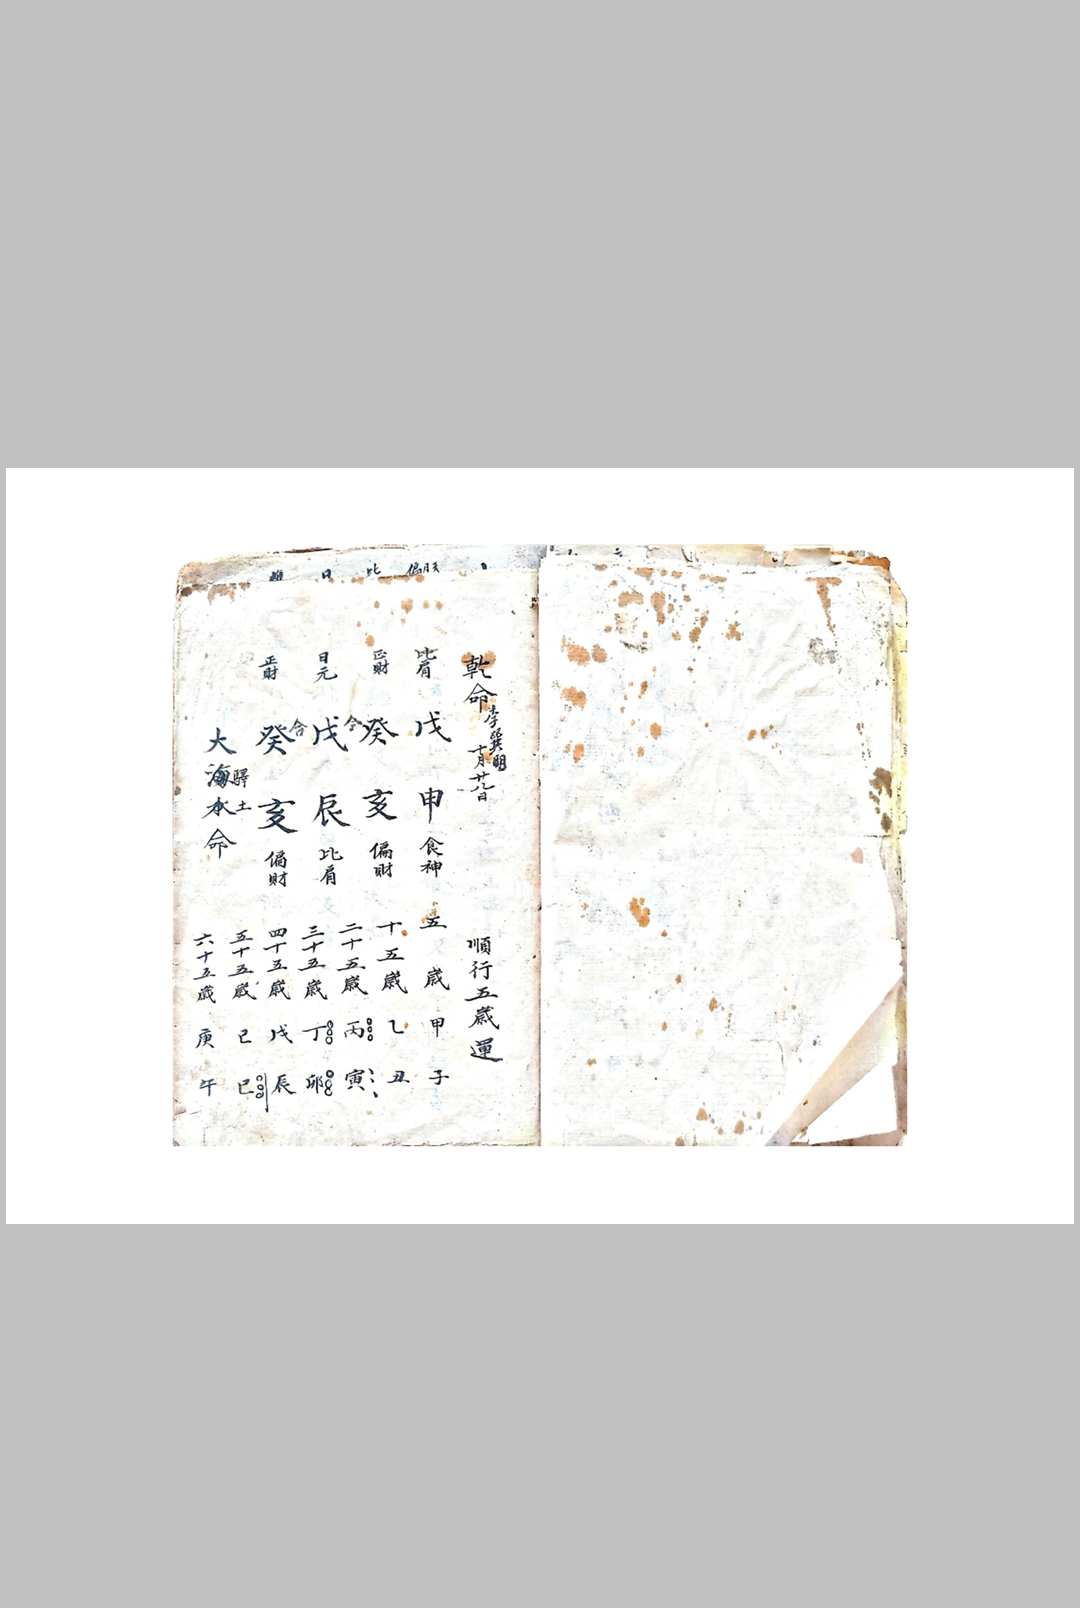 乾命 李巽明 十月廿八日 順行五歲運
比肩 戊 申 食神 五歲 甲子
正財 癸 亥 偏財 十五歲 乙丑
合
日元 戊 辰 比肩 二十五歲 丙寅
合
正財 癸 亥 偏財 三十五歲 丁卯
四十五歲 戊辰
大海水命 驛土 五十五歲 己巳
六十五歲 庚午
日 比 偏